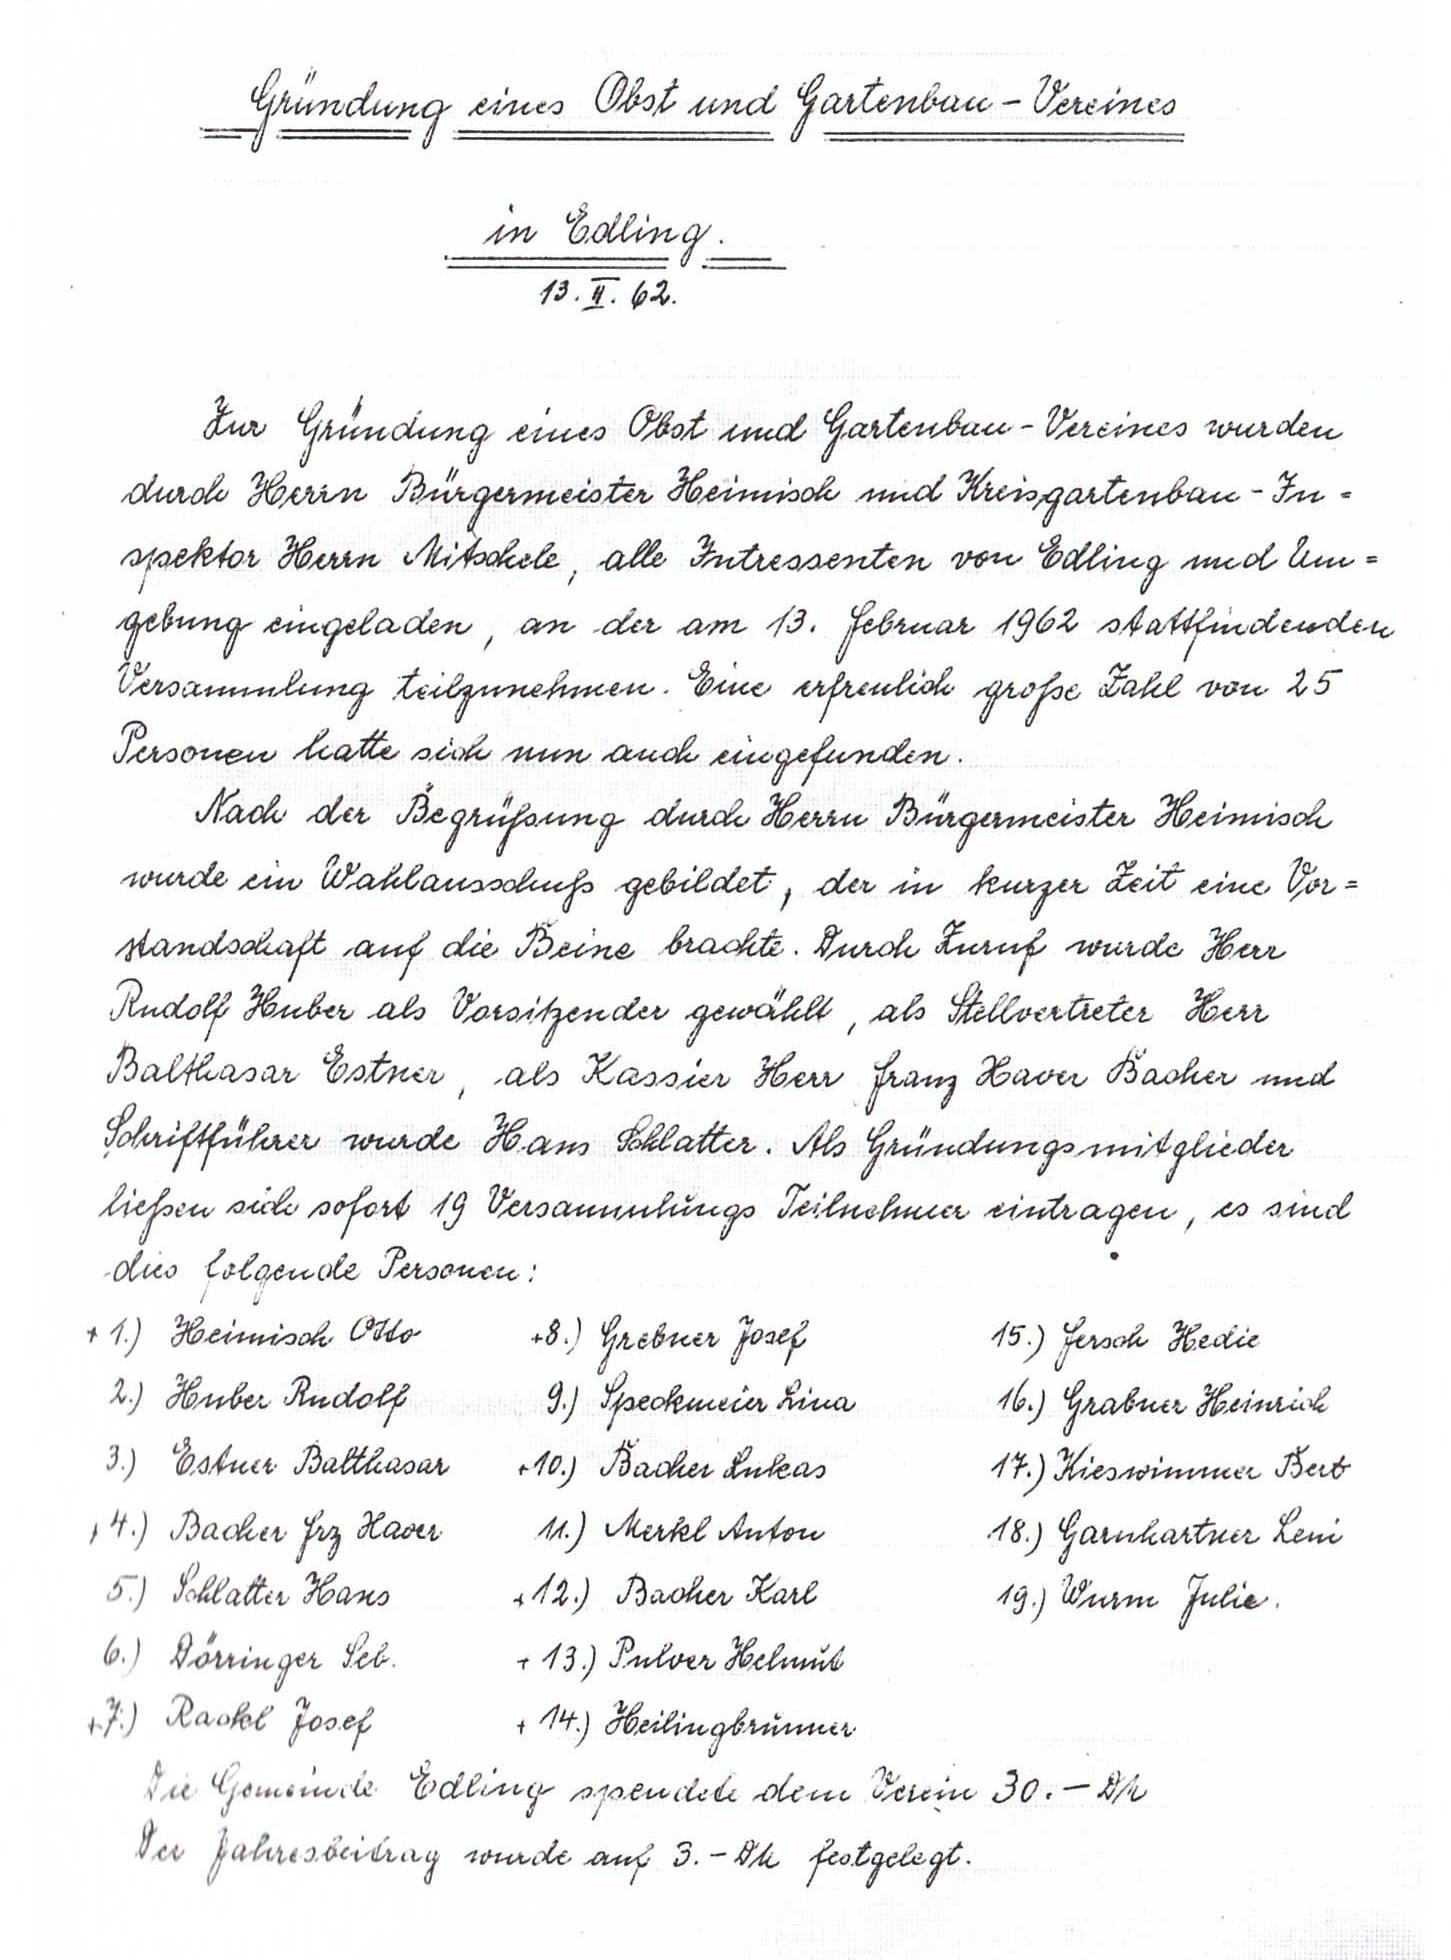 Gründung eines Obst und Gartenbau-Vereines
in Edling.
13. II. 62.
Zur Gründung eines Obst und Gartenbau-Vereines wurden
durch Herrn Bürgermeister Heimisch und Kreisgartenbau-In=
spektor Herrn Mitschele, alle Intressenten von Edling und Um=
gebung eingeladen, an der am 13. Februar 1962 stattfindenden
Versammlung teilzunehmen. Eine erfreulich große Zahl von 25
Personen hatte sich nun auch eingefunden.
Nach der Begrüßung durch Herrn Bürgermeister Heimisch
wurde ein Wahlausschuß gebildet, der in kurzer Zeit eine Vor=
standschaft auf die Beine brachte. Durch Zuruf wurde Herr
Rudolf Huber als Vorsitzender gewählt, als Stellvertreter Herr
Balthasar Estner, als Kassier Herr Franz Xaver Bacher und
Schriftführer wurde Hans Schlatter. Als Gründungsmitglieder
ließen sich sofort 19 Versammlungs Teilnehmer eintragen, es sind
dies folgende Personen:
+ 1.) Heimisch Otto
2.) Huber Rudolf
3.) Estner Balthasar
+ 4.) Bacher Frz Xaver
5.) Schlatter Hans
6.) Dörringer Seb.
+ 7.) Rackl Josef
+ 8.) Grebner Josef
9.) Speckmeier Lina
+ 10.) Bacher Lukas
11.) Merkl Anton
+ 12.) Bacher Karl
+ 13.) Pulver Helmut
+ 14.) Heilingbrunner
15.) Jersch Hedie
16.) Grabner Heinrich
17.) Kieswimmer Bert
18.) Garnhartner Leni
19.) Wurm Julie.
Die Gemeinde Edling spendete dem Verein 30.- DM
Der Jahresbeitrag wurde auf 3.- DM festgelegt.